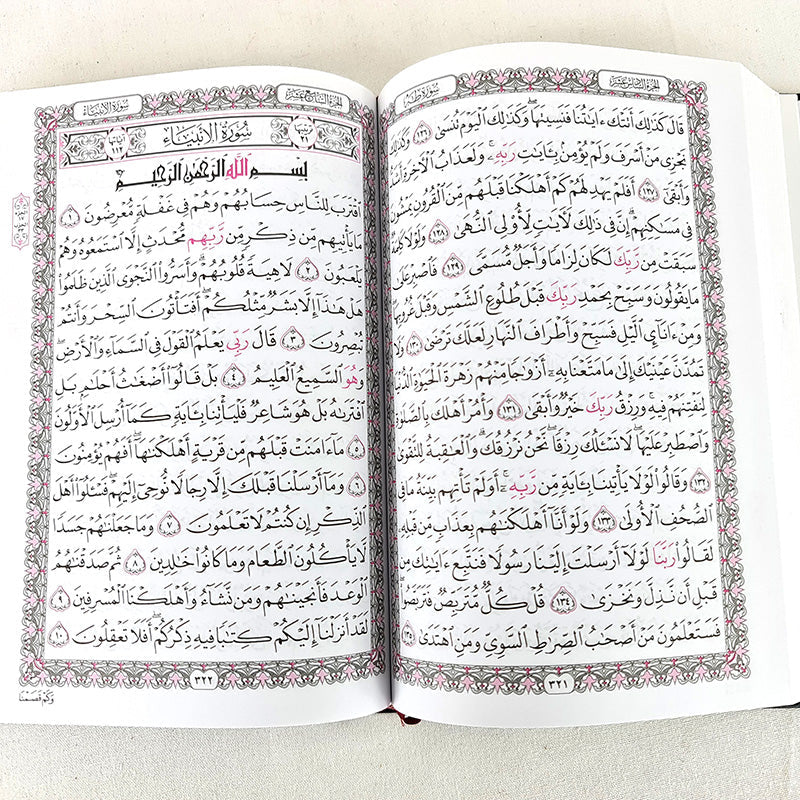 الجزء السادس عشر
سورة طه
قَالَ كَذَٰلِكَ أَتَتْكَ ءَايَٰتُنَا فَنَسِيتَهَا ۖ وَكَذَٰلِكَ ٱلْيَوْمَ تُنسَىٰ ١٢٦ وَكَذَٰلِكَ
نَجْزِى مَنْ أَسْرَفَ وَلَمْ يُؤْمِنۢ بِـَٔايَٰتِ رَبِّهِۦ ۚ وَلَعَذَابُ ٱلْءَاخِرَةِ أَشَدُّ
وَأَبْقَىٰٓ ١٢٧ أَفَلَمْ يَهْدِ لَهُمْ كَمْ أَهْلَكْنَا قَبْلَهُم مِّنَ ٱلْقُرُونِ يَمْشُونَ
فِى مَسَٰكِنِهِمْ ۗ إِنَّ فِى ذَٰلِكَ لَءَايَٰتٍ لِّأُو۟لِى ٱلنُّهَىٰ ١٢٨ وَلَوْلَا كَلِمَةٌ
سَبَقَتْ مِن رَّبِّكَ لَكَانَ لِزَامًا وَأَجَلٌ مُّسَمًّى ١٢٩ فَٱصْبِرْ عَلَىٰ
مَا يَقُولُونَ وَسَبِّحْ بِحَمْدِ رَبِّكَ قَبْلَ طُلُوعِ ٱلشَّمْسِ وَقَبْلَ غُرُوبِهَا ۖ
وَمِنْ ءَانَآئِ ٱلَّيْلِ فَسَبِّحْ وَأَطْرَافَ ٱلنَّهَارِ لَعَلَّكَ تَرْضَىٰ ١٣٠ وَلَا
تَمُدَّنَّ عَيْنَيْكَ إِلَىٰ مَا مَتَّعْنَا بِهِۦٓ أَزْوَٰجًا مِّنْهُمْ زَهْرَةَ ٱلْحَيَوٰةِ ٱلدُّنْيَا
لِنَفْتِنَهُمْ فِيهِ ۚ وَرِزْقُ رَبِّكَ خَيْرٌ وَأَبْقَىٰ ١٣١ وَأْمُرْ أَهْلَكَ بِٱلصَّلَوٰةِ
وَٱصْطَبِرْ عَلَيْهَا ۖ لَا نَسْـَٔلُكَ رِزْقًا ۖ نَّحْنُ نَرْزُقُكَ ۗ وَٱلْعَٰقِبَةُ لِلتَّقْوَىٰ
١٣٢ وَقَالُوا۟ لَوْلَا يَأْتِينَا بِـَٔايَةٍ مِّن رَّبِّهِۦٓ ۚ أَوَلَمْ تَأْتِهِم بَيِّنَةُ مَا فِى
ٱلصُّحُفِ ٱلْأُولَىٰ ١٣٣ وَلَوْ أَنَّآ أَهْلَكْنَٰهُم بِعَذَابٍ مِّن قَبْلِهِۦ
لَقَالُوا۟ رَبَّنَا لَوْلَآ أَرْسَلْتَ إِلَيْنَا رَسُولًا فَنَتَّبِعَ ءَايَٰتِكَ مِن
قَبْلِ أَن نَّذِلَّ وَنَخْزَىٰ ١٣٤ قُلْ كُلٌّ مُّتَرَبِّصٌ فَتَرَبَّصُوا۟ ۖ
فَسَتَعْلَمُونَ مَنْ أَصْحَٰبُ ٱلصِّرَٰطِ ٱلسَّوِىِّ وَمَنِ ٱهْتَدَىٰ ١٣٥
٣٢١
الجزء السابع عشر
سورة الأنبياء
ترتيبها ٢١
سُورَةُ الأَنْبِيَاءِ
آياتها ١١٢
بِسْمِ ٱللَّهِ ٱلرَّحْمَٰنِ ٱلرَّحِيمِ
ٱقْتَرَبَ لِلنَّاسِ حِسَابُهُمْ وَهُمْ فِى غَفْلَةٍ مُّعْرِضُونَ ١
مَا يَأْتِيهِم مِّن ذِكْرٍ مِّن رَّبِّهِم مُّحْدَثٍ إِلَّا ٱسْتَمَعُوهُ وَهُمْ
يَلْعَبُونَ ٢ لَاهِيَةً قُلُوبُهُمْ ۗ وَأَسَرُّوا۟ ٱلنَّجْوَى ٱلَّذِينَ ظَلَمُوا۟
هَلْ هَٰذَآ إِلَّا بَشَرٌ مِّثْلُكُمْ ۖ أَفَتَأْتُونَ ٱلسِّحْرَ وَأَنتُمْ
تُبْصِرُونَ ٣ قَالَ رَبِّى يَعْلَمُ ٱلْقَوْلَ فِى ٱلسَّمَآءِ وَٱلْأَرْضِ ۖ
وَهُوَ ٱلسَّمِيعُ ٱلْعَلِيمُ ٤ بَلْ قَالُوٓا۟ أَضْغَٰثُ أَحْلَٰمٍۭ بَلِ
ٱفْتَرَىٰهُ بَلْ هُوَ شَاعِرٌ فَلْيَأْتِنَا بِـَٔايَةٍ كَمَآ أُرْسِلَ ٱلْأَوَّلُونَ
٥ مَآ ءَامَنَتْ قَبْلَهُم مِّن قَرْيَةٍ أَهْلَكْنَٰهَآ ۖ أَفَهُمْ يُؤْمِنُونَ
٦ وَمَآ أَرْسَلْنَا قَبْلَكَ إِلَّا رِجَالًا نُّوحِىٓ إِلَيْهِمْ ۖ فَسْـَٔلُوٓا۟ أَهْلَ
ٱلذِّكْرِ إِن كُنتُمْ لَا تَعْلَمُونَ ٧ وَمَا جَعَلْنَٰهُمْ جَسَدًا
لَّا يَأْكُلُونَ ٱلطَّعَامَ وَمَا كَانُوا۟ خَٰلِدِينَ ٨ ثُمَّ صَدَقْنَٰهُمُ
ٱلْوَعْدَ فَأَنجَيْنَٰهُمْ وَمَن نَّشَآءُ وَأَهْلَكْنَا ٱلْمُسْرِفِينَ ٩
لَقَدْ أَنزَلْنَآ إِلَيْكُمْ كِتَٰبًا فِيهِ ذِكْرُكُمْ ۖ أَفَلَا تَعْقِلُونَ ١٠
٣٢٢
وَكَمْ قَصَمْنَا